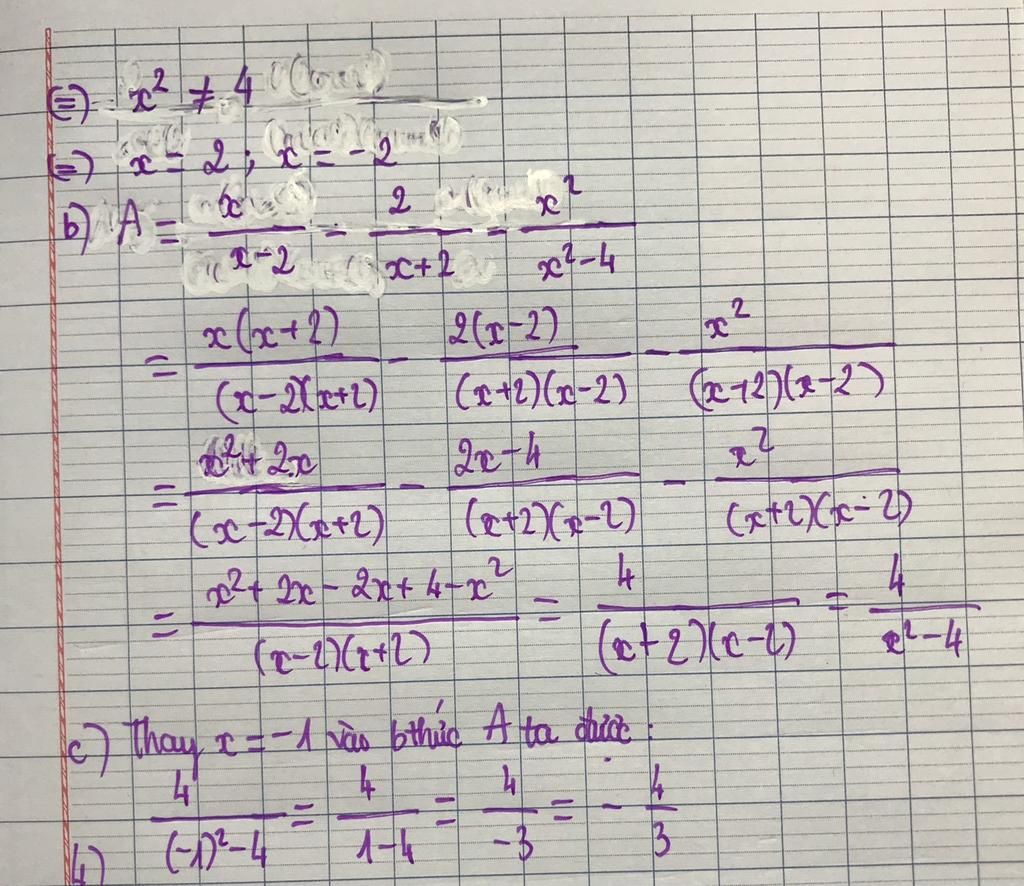 (=) x² ≠ 4
(=) x = 2 ; x = -2
b) A = x/(x-2) - 2/(x+2) - x²/(x²-4)
= x(x+2)/(x-2)(x+2) - 2(x-2)/(x+2)(x-2) - x²/(x+2)(x-2)
= x²+2x/(x-2)(x+2) - 2x-4/(x+2)(x-2) - x²/(x+2)(x-2)
= x²+2x-2x+4-x²/(x-2)(x+2) = 4/(x+2)(x-2) = 4/(x²-4)
c) Thay x = -1 vào bthức A ta được :
4/((-1)²-4) = 4/(1-4) = 4/-3 = - 4/3